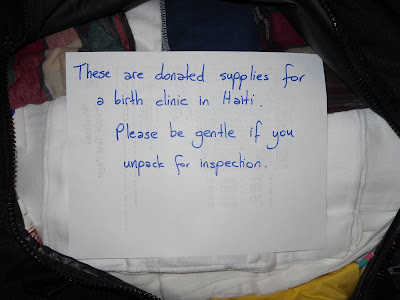 These are donated supplies for
a birth clinic in Haiti.
Please be gentle if you
unpack for inspection.